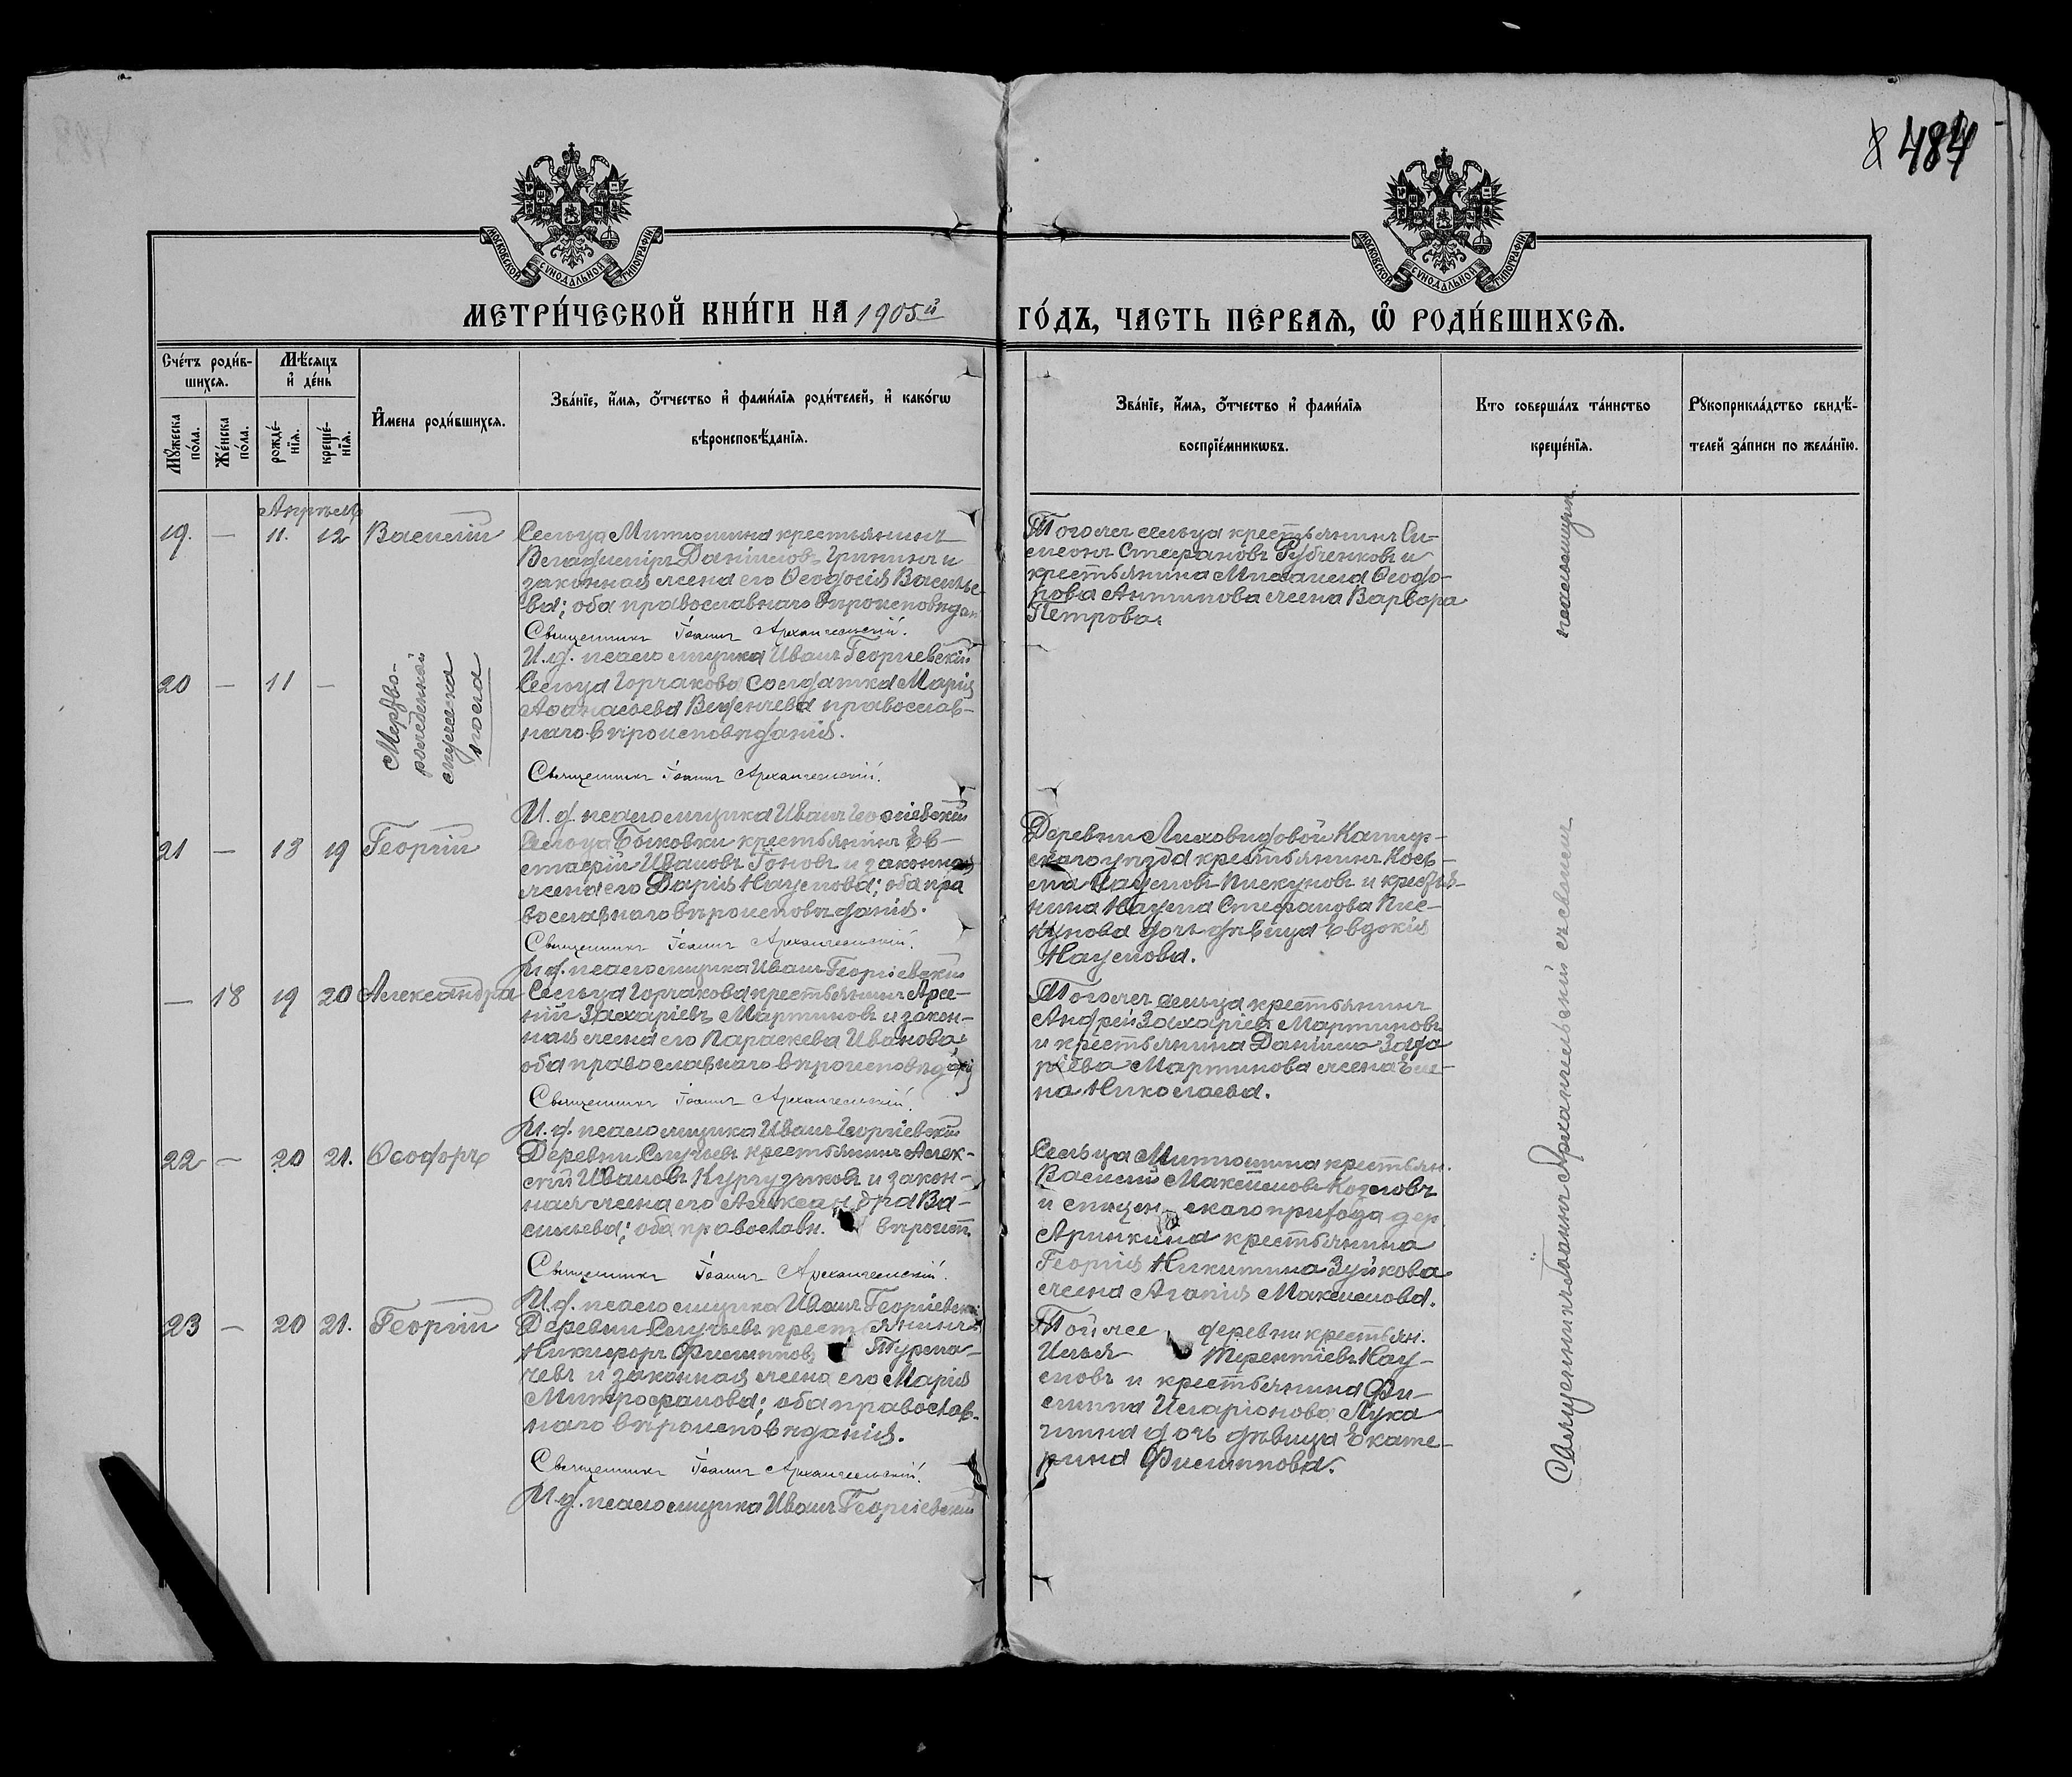 484
МОСКОВСКОЙ СѴНОДАЛЬНОЙ ТИПОГРАФІИ
МОСКОВСКОЙ СѴНОДАЛЬНОЙ ТИПОГРАФІИ
МЕТРИ́ЧЕСКОЙ КНИ́ГИ НА 1905й
ГО́ДЪ, ЧАСТЬ ПЕ́РВАѦ, Ѡ҆ РОДИ́ВШИХСѦ.
Сче́тъ роди́в-
шихсѧ.
Мѣ́сѧцъ
и҆ де́нь
Мꙋ́жеска
по́ла.
Же́нска
по́ла.
рожде́-
нїѧ.
креще́-
нїѧ.
И҆мена роди́вшихсѧ.
Зва́нїе, и҆́мѧ, ѻ҆́тчество и҆ фами́лїѧ роди́телей, и҆ како́гѡ
вѣроисповѣ́данїѧ.
Зва́нїе, и҆́мѧ, ѻ҆́тчество и҆ фами́лїѧ
воспрїе́мникѡвъ.
Кто соверша́лъ та́инство
креще́нїѧ.
Рꙋкоприкла́дство свидѣ́-
телей за́писи по жела́нїю.
Апрѣль
19. — 11. 12 Василій
Сельца Митюшина крестьянинъ
Владиміръ Даніиловъ Гришинъ и
законная жена его Ѳеодосія Василье-
ва; оба православнаго вѣроисповѣдан
Священникъ Іоаннъ Архангельскій.
И.д. псаломщика Иванъ Георгіевскій
Тогоже сельца крестьянинъ Си-
меонъ Стефановъ Рубченковъ и
крестьянина Михаила Ѳеодо-
рова Антипова жена Варвара
Петрова.
20 — 11 —
Мертво-
рожденный
мужеска
пола
Сельца Горчакова Солдатка Марія
Аѳанасьева православ-
наго вѣроисповѣданія.
Священникъ Іоаннъ Архангельскій.
И.д. псаломщика Иванъ Георгіевскій
21 — 18 19 Георгій
Сельца Быковки крестьянинъ Ев-
стафій Ивановъ Гоновъ и законная
жена его Дарія Наумова; оба пра
вославнаго вѣроисповѣданія.
Священникъ Іоаннъ Архангельскій.
И.д. псаломщика Иванъ Георгіевскій
Деревни Лиховидовой Кашир-
скаго уѣзда крестьянинъ Косъ-
ма Наумовъ Пискуновъ и крестья-
нина Наума Стефанова Пис-
кунова дочь дѣвица Евдокія
Наумова.
— 18 19 20 Александра
Сельца Горчакова крестьянинъ Арсе-
ній Захаріевъ Мартиновъ и закон-
ная жена его Параскева Иванова;
оба православнаго вѣроисповѣданія
Священникъ Іоаннъ Архангельскій.
И.д. псаломщика Иванъ Георгіевскій
Тогоже сельца крестьянинъ
Андрей Захаріевъ Мартиновъ
и крестьянина Даніила Заха
ріева Мартинова жена Еле-
на Николаева.
22 — 20 21. Ѳеодоръ
Деревни крестьянинъ Алек-
сій Ивановъ и закон-
ная жена его Александра Ва-
сильева; оба православн. вѣроисп.
Священникъ Іоаннъ Архангельскій.
И.д. псаломщика Иванъ Георгіевскій
Сельца Митюшина крестьян.
Василій Максимовъ Козловъ
и скаго прихода дер.
Аринкина крестьянина
Георгія Никитина Зуйкова
жена Агапія Максимова.
23 — 20 21. Георгій
Деревни крестьянинъ
Никифоръ Филипповъ
и законная жена его Марія
Митрофанова; оба православ-
наго вѣроисповѣданія.
Священникъ Іоаннъ Архангельскій.
И.д. псаломщика Иванъ Георгіевскій
Тойже деревни крестьян.
Илья Терентіевъ Нау-
мовъ и крестьянина Фи-
липпа Иларіонова Лука
шина дочь дѣвица Екате-
рина Филиппова.
Священникъ Іоаннъ Архангельскій съ псаломщик.